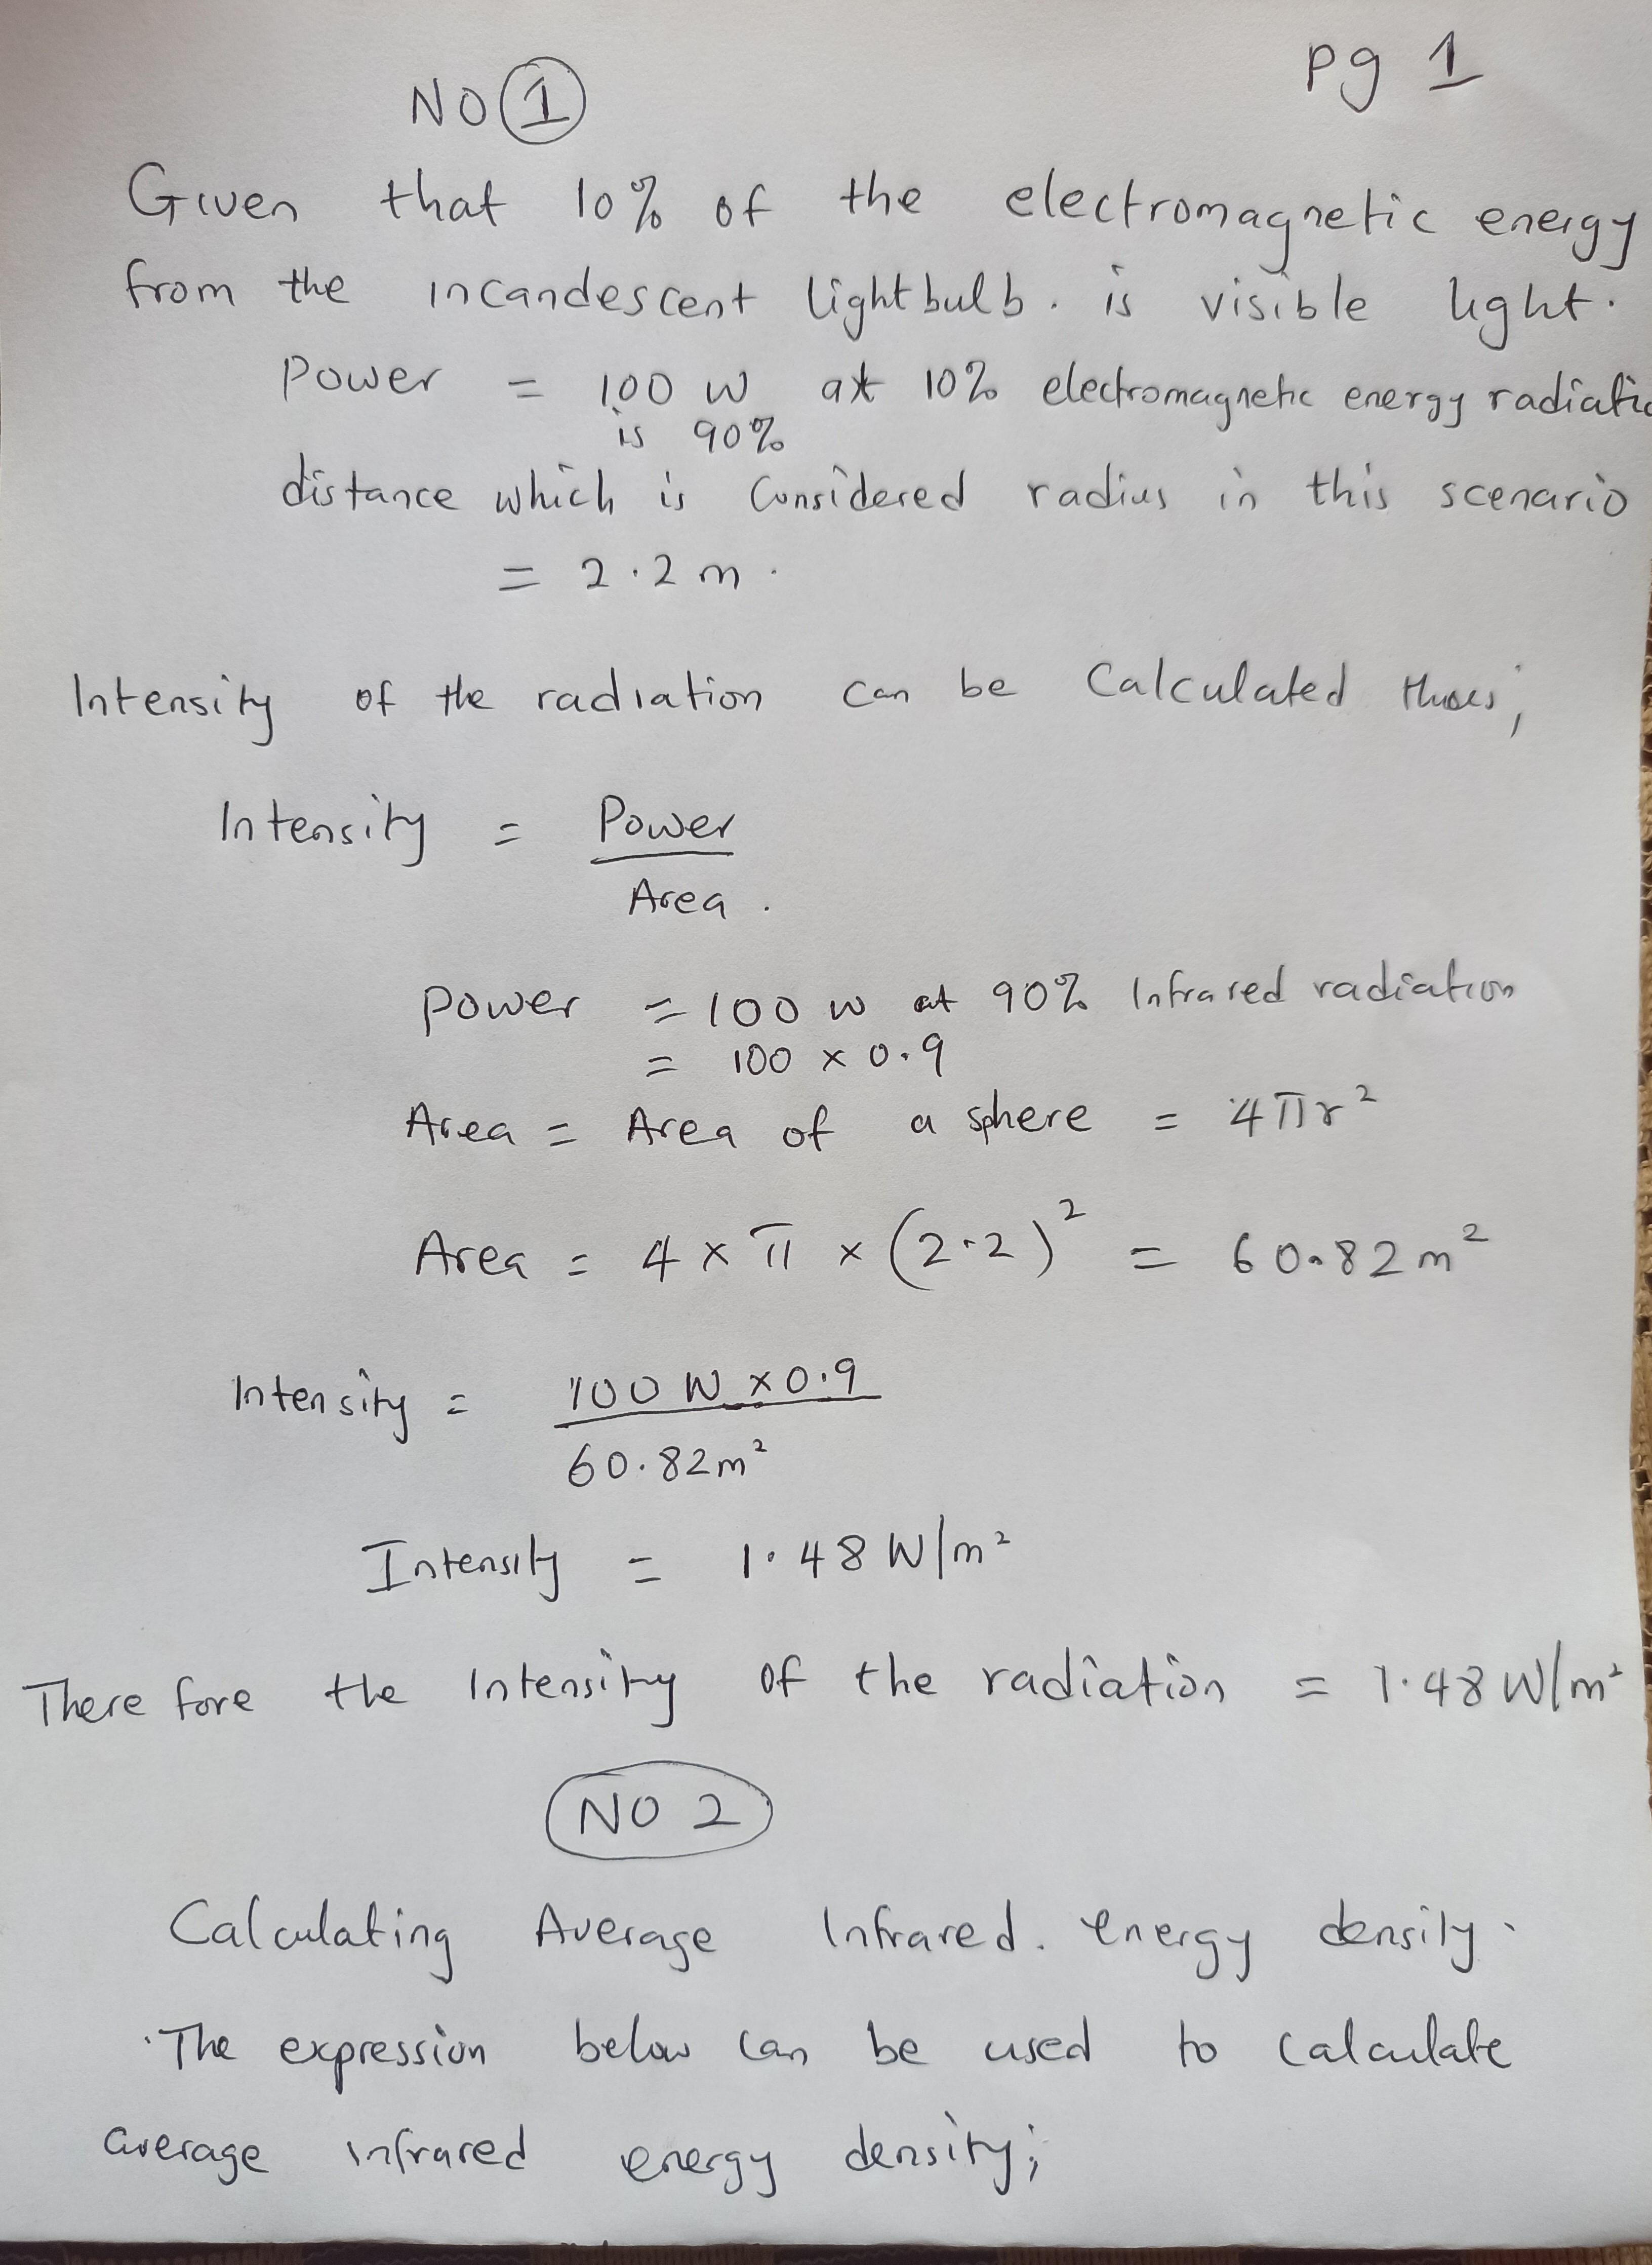 pg 1
NO 1
Given that 10% of the electromagnetic energy
from the incandescent lightbulb. is visible light.
Power = 100 W at 10% electromagnetic energy radiatio
is 90%
distance which is considered radius in this scenario
= 2.2 m.
Intensity of the radiation can be Calculated
Intensity = Power
Area.
Power = 100 w at 90% Infrared radiation
= 100 x 0.9
Area = Area of a sphere = 4πr²
Area = 4 x π x (2.2)² = 60.82 m²
Intensity = 100 W x 0.9
60.82m²
Intensity = 1.48 W/m²
There fore the Intensity of the radiation = 1.48 W/m²
NO 2
Calculating Average Infrared. energy density.
The expression below can be used to calculate
average infrared energy density;